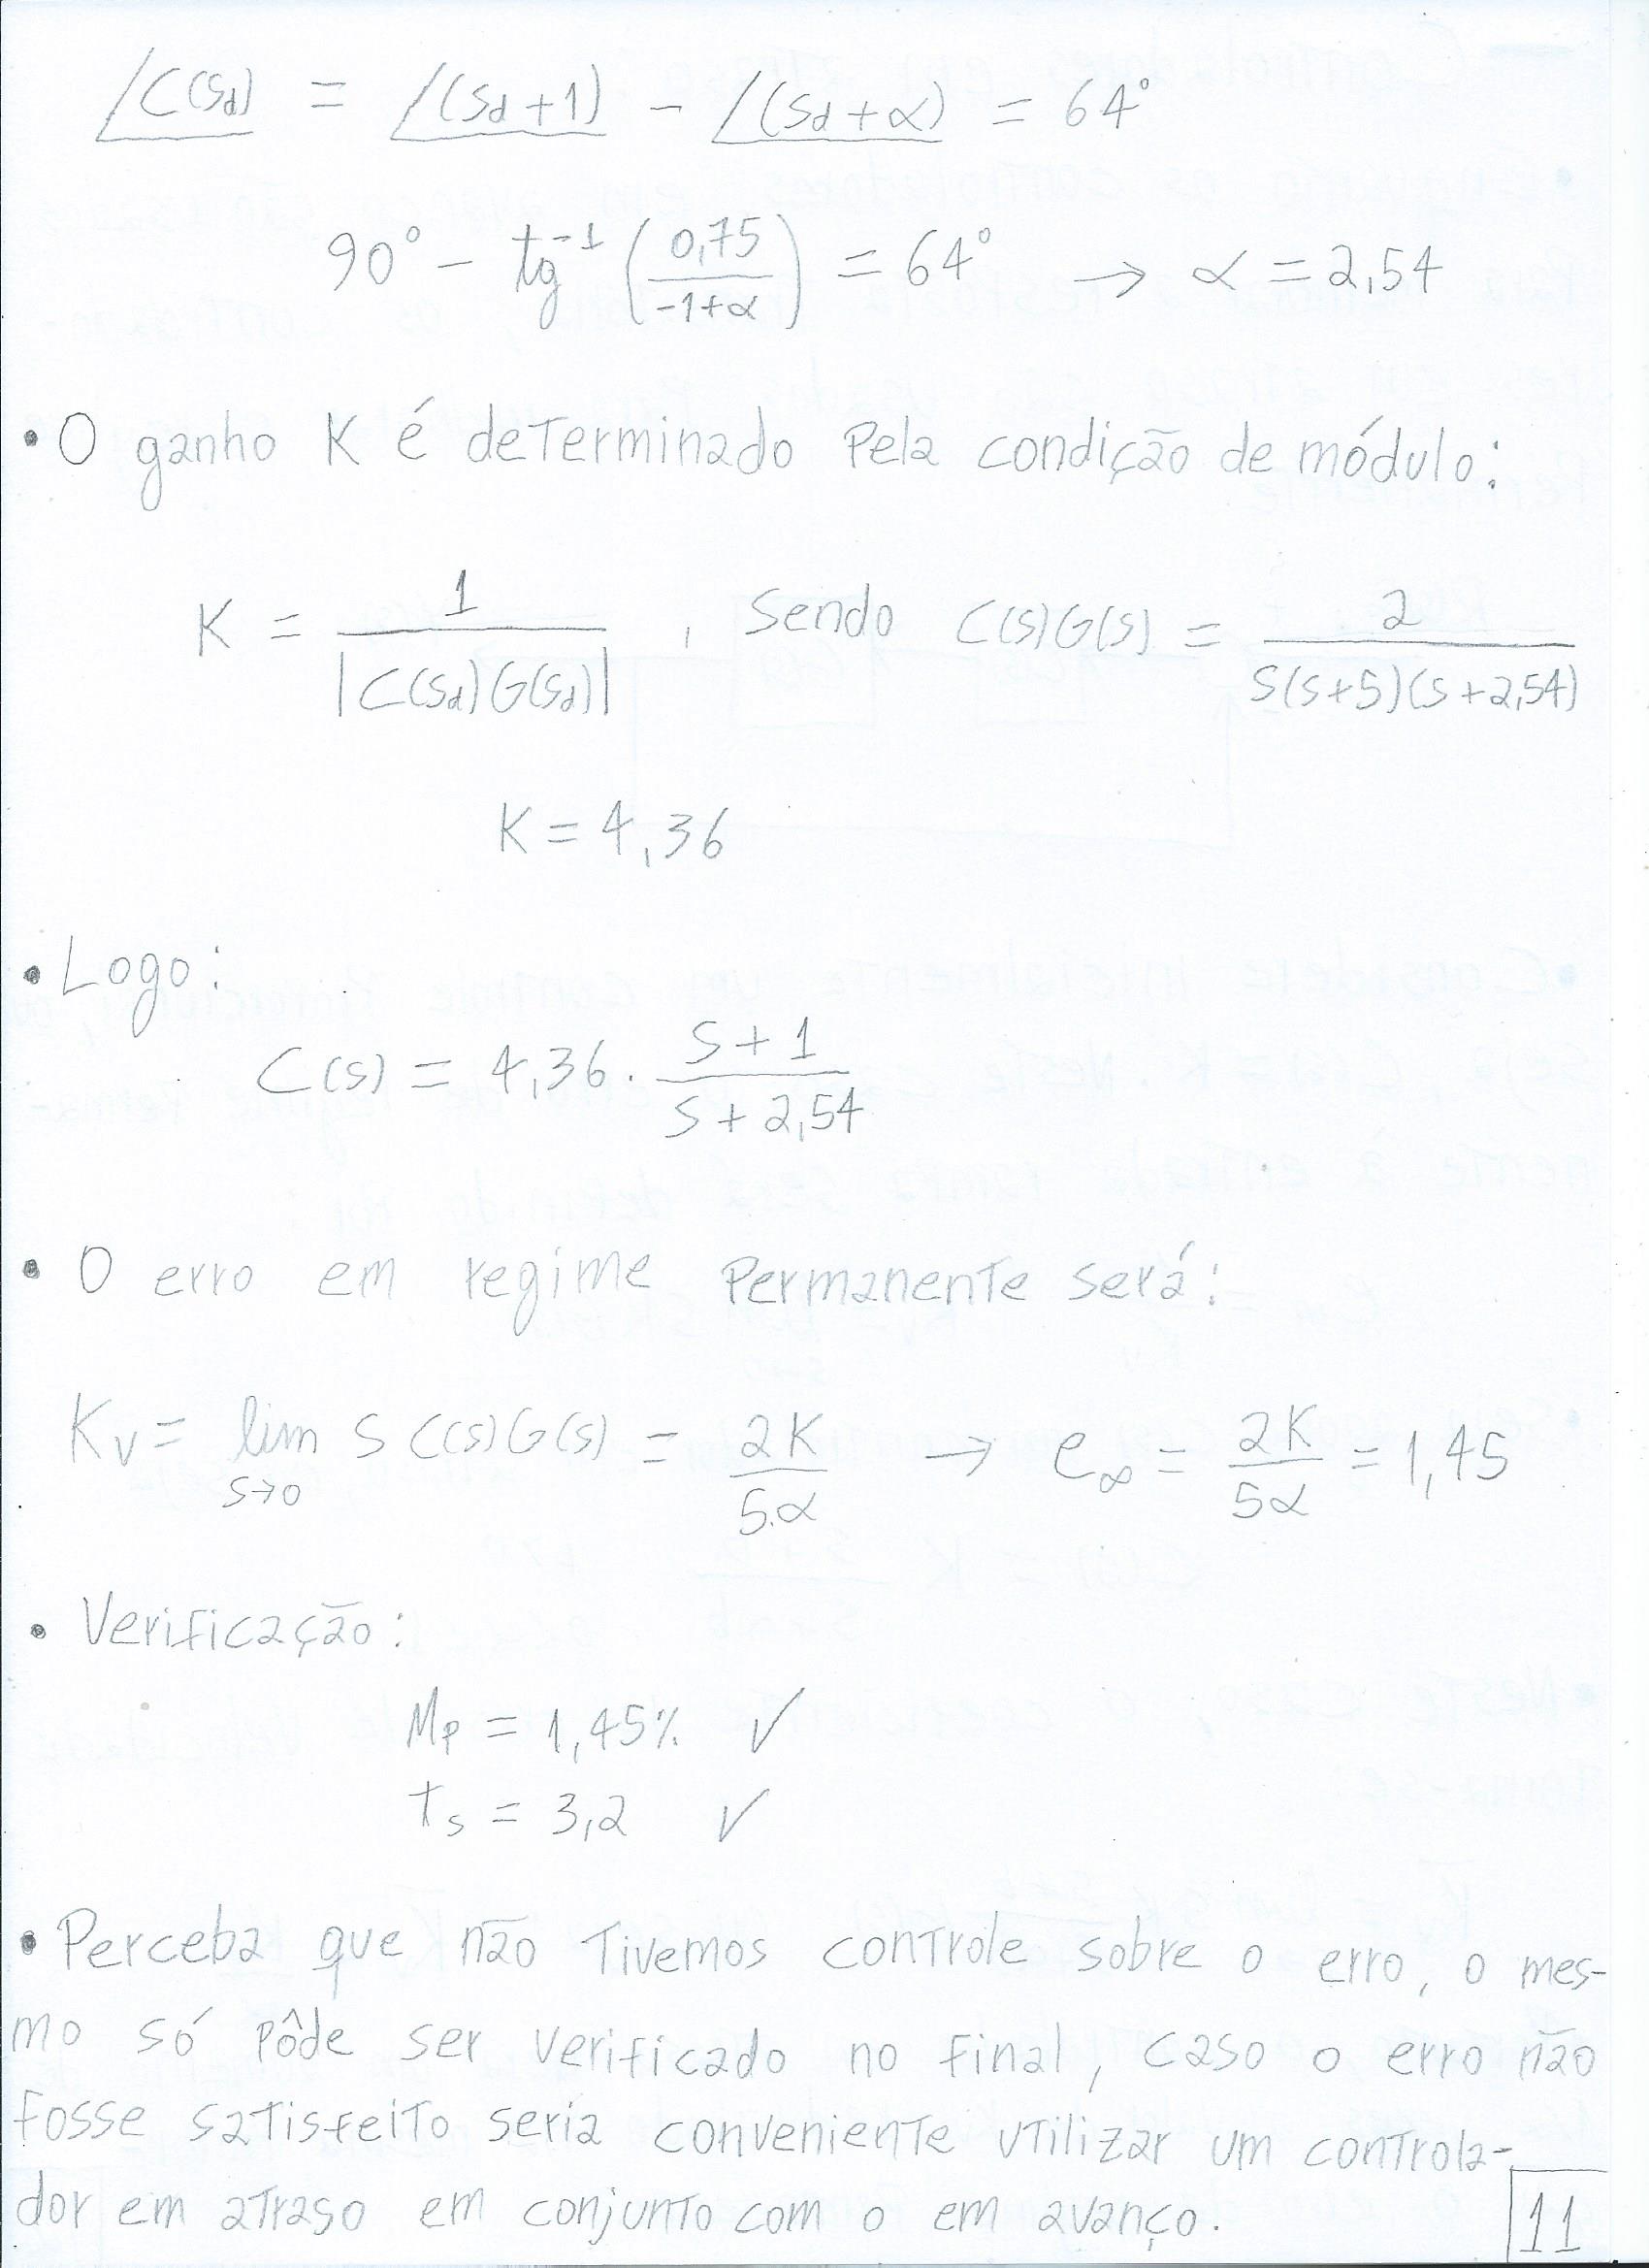 ∠C(Sd) = ∠(Sd+1) - ∠(Sd+α) = 64°
90° - tg⁻¹(0,75/(-1+α)) = 64° → α = 2,54
• O ganho K é determinado pela condição de módulo:
K = 1/|C(Sd)G(Sd)| , sendo C(s)G(s) = 2/(S(s+5)(s+2,54))
K = 4,36
• Logo:
C(s) = 4,36 . (S+1)/(S+2,54)
• O erro em regime permanente será:
Kv = lim s→0 S C(s)G(s) = 2K/5.α → e∞ = 2K/5α = 1,45
• Verificação:
Mp = 1,45% ✓
ts = 3,2 ✓
• Perceba que não tivemos controle sobre o erro, o mes-
mo só pôde ser verificado no final, caso o erro não
fosse satisfeito seria conveniente utilizar um controla-
dor em atraso em conjunto com o em avanço.
11